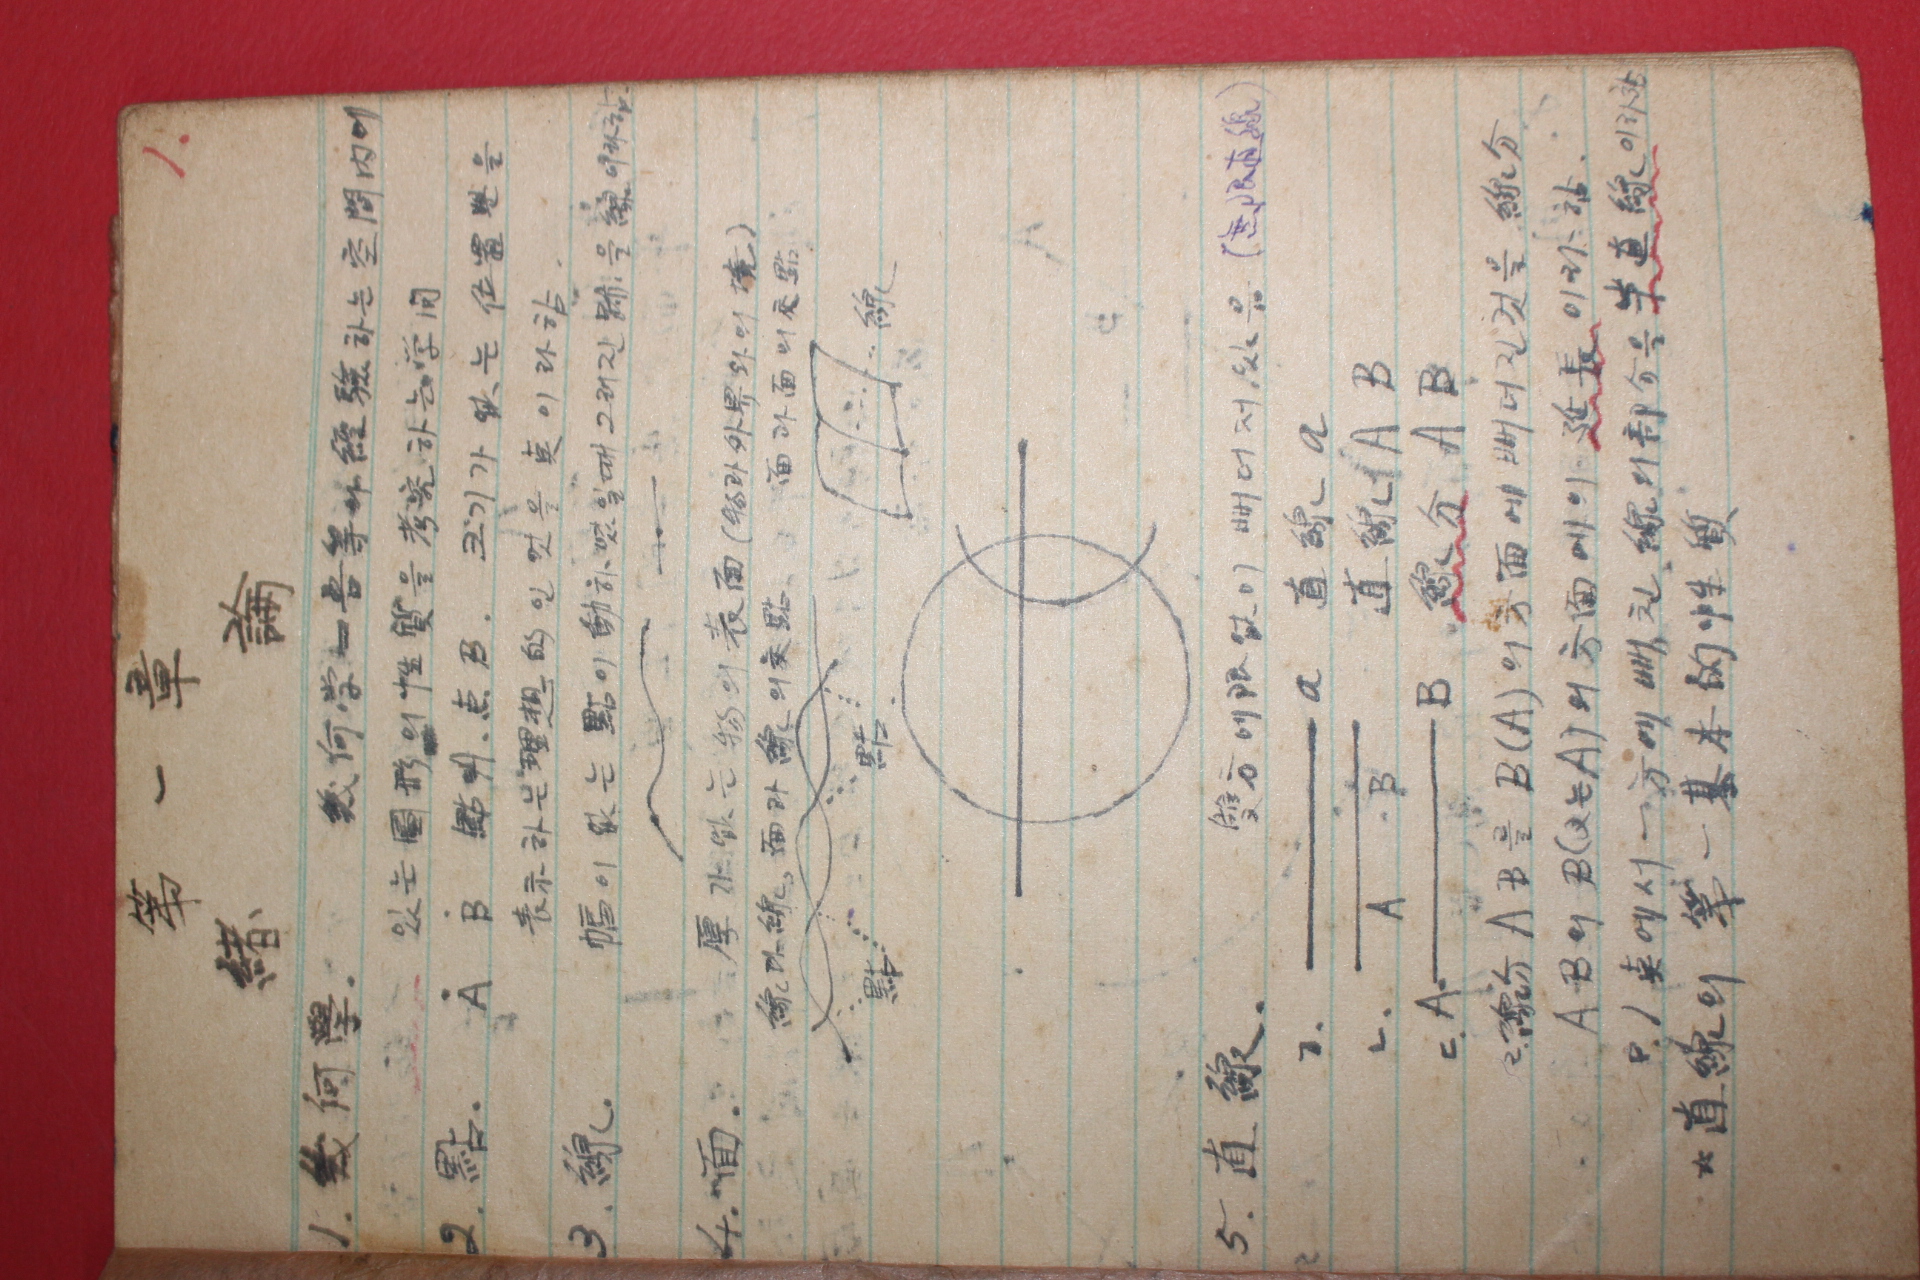 1.
第 一 章
緖 論
1. 幾何學. 幾何学ー吾等의 經驗하는 空間内에
있는 圖形의 性質을 考究하는 学问
2. 點. A B 點A. 点B. 크기가 없는 位置뿐을
表示하는 理想的인 것을 点이라함.
3. 線. 幅이 없는 點이 動하였을때 그려진 跡을 線이라함.
4. 面. 厚가 없는 物의 表面 (物과 外界와의 境)
線과 線, 面과 線의 交點. 面과 面의 交點
點 點 線
5. 直線. 雙方에 限없이 뻐더저 있음 (無限直線)
ㄱ. a 直線 a
ㄴ. A B 直線 A B
ㄷ. A B 線分 A B
ㄹ. 線分 A B를 B(A)의 方面에 뻐더진것을 線分
A B의 B(又는A)의 方面에의 延長이라 함.
ㅁ. 1 点에서 一方에 뻐친 線의 部分을 半直線이라함
* 直線의 第一基本的性質